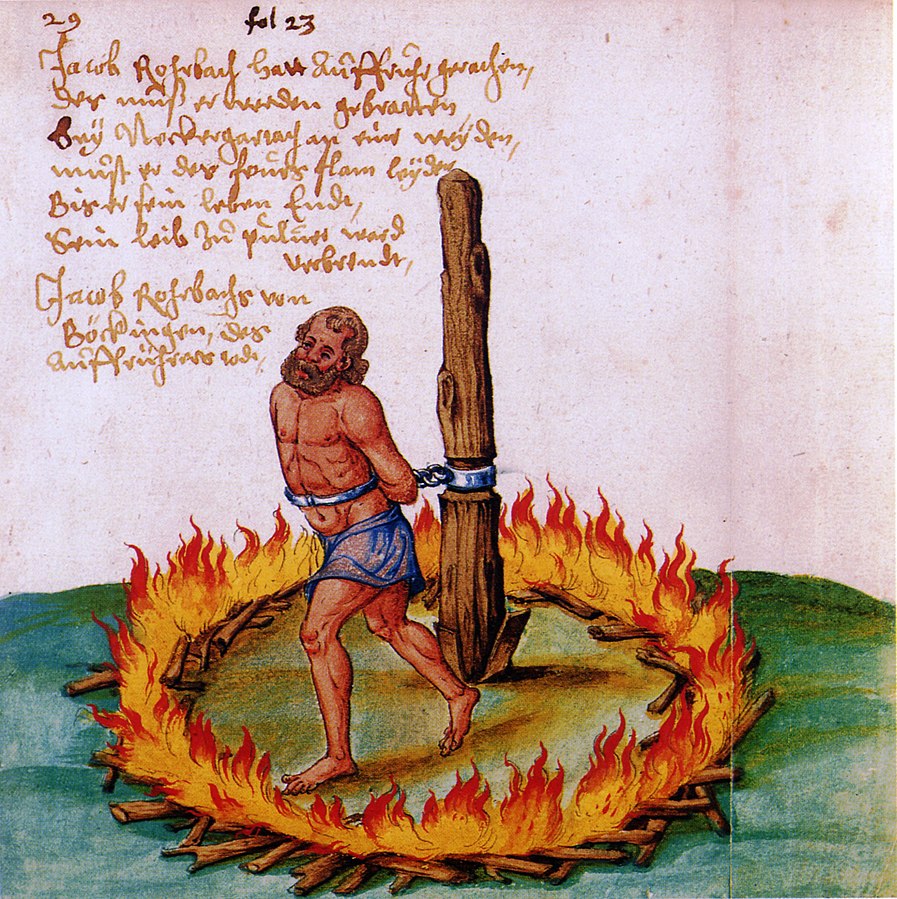 29
fol 23
Jacob Rohrbach hatt Auffruhr gerathen,
des muß er werden gebratten,
Bey Neckergartach an eine weyden,
must er des feurs flam leyden
Bis er sein leben Endt,
Sein leib Zu puluer ward
verbrendt,
Jacob Rohrbachs von
Böckingen, des
Auffrührers todt,